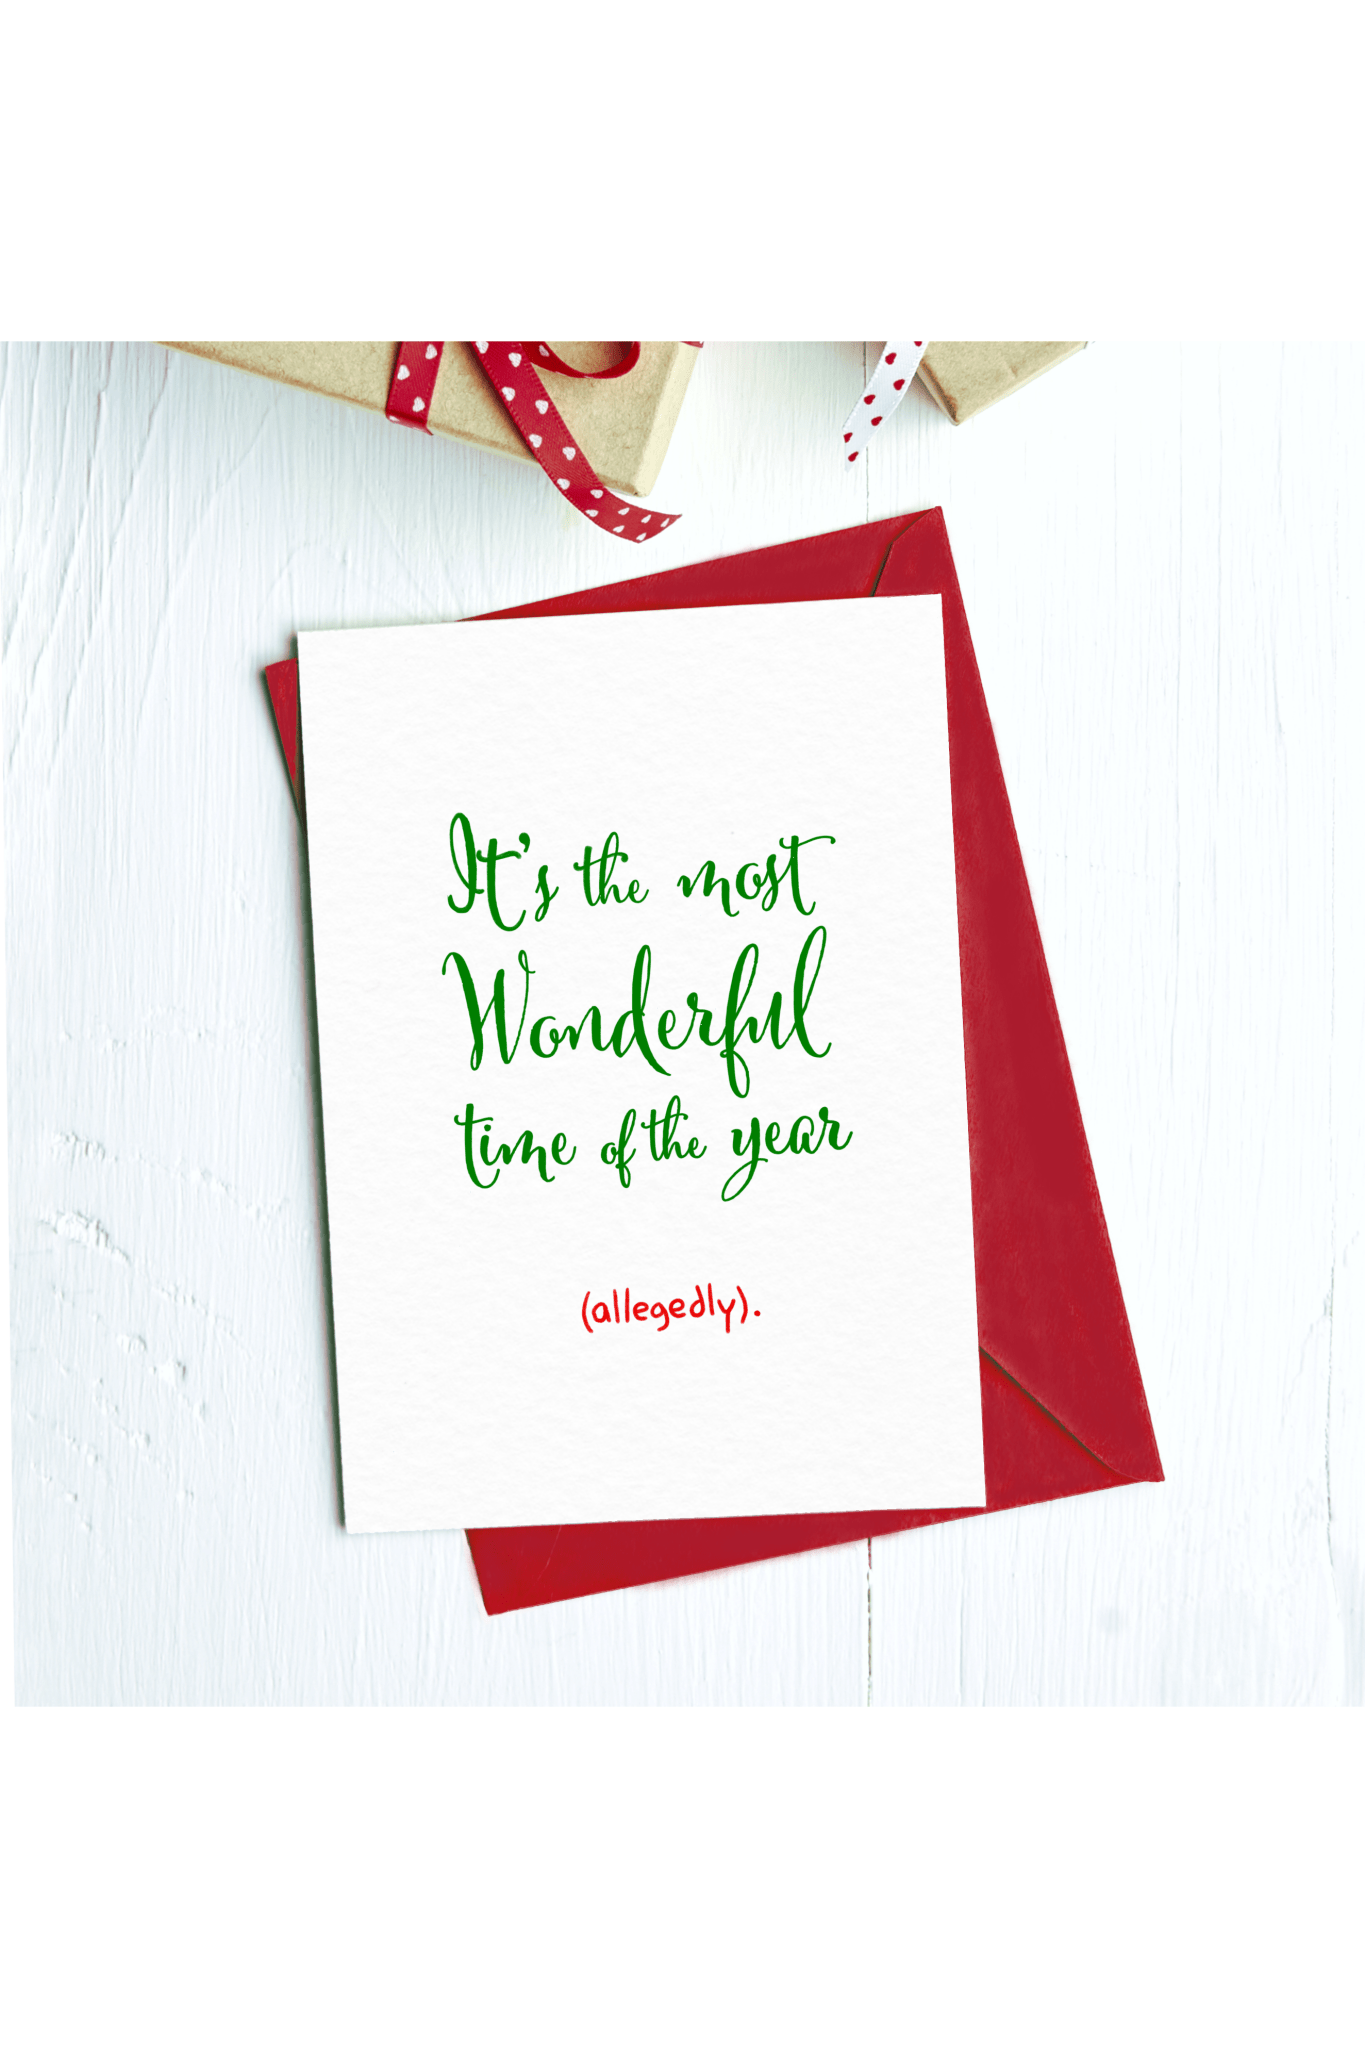 It's the most
Wonderful
time of the year
(allegedly).